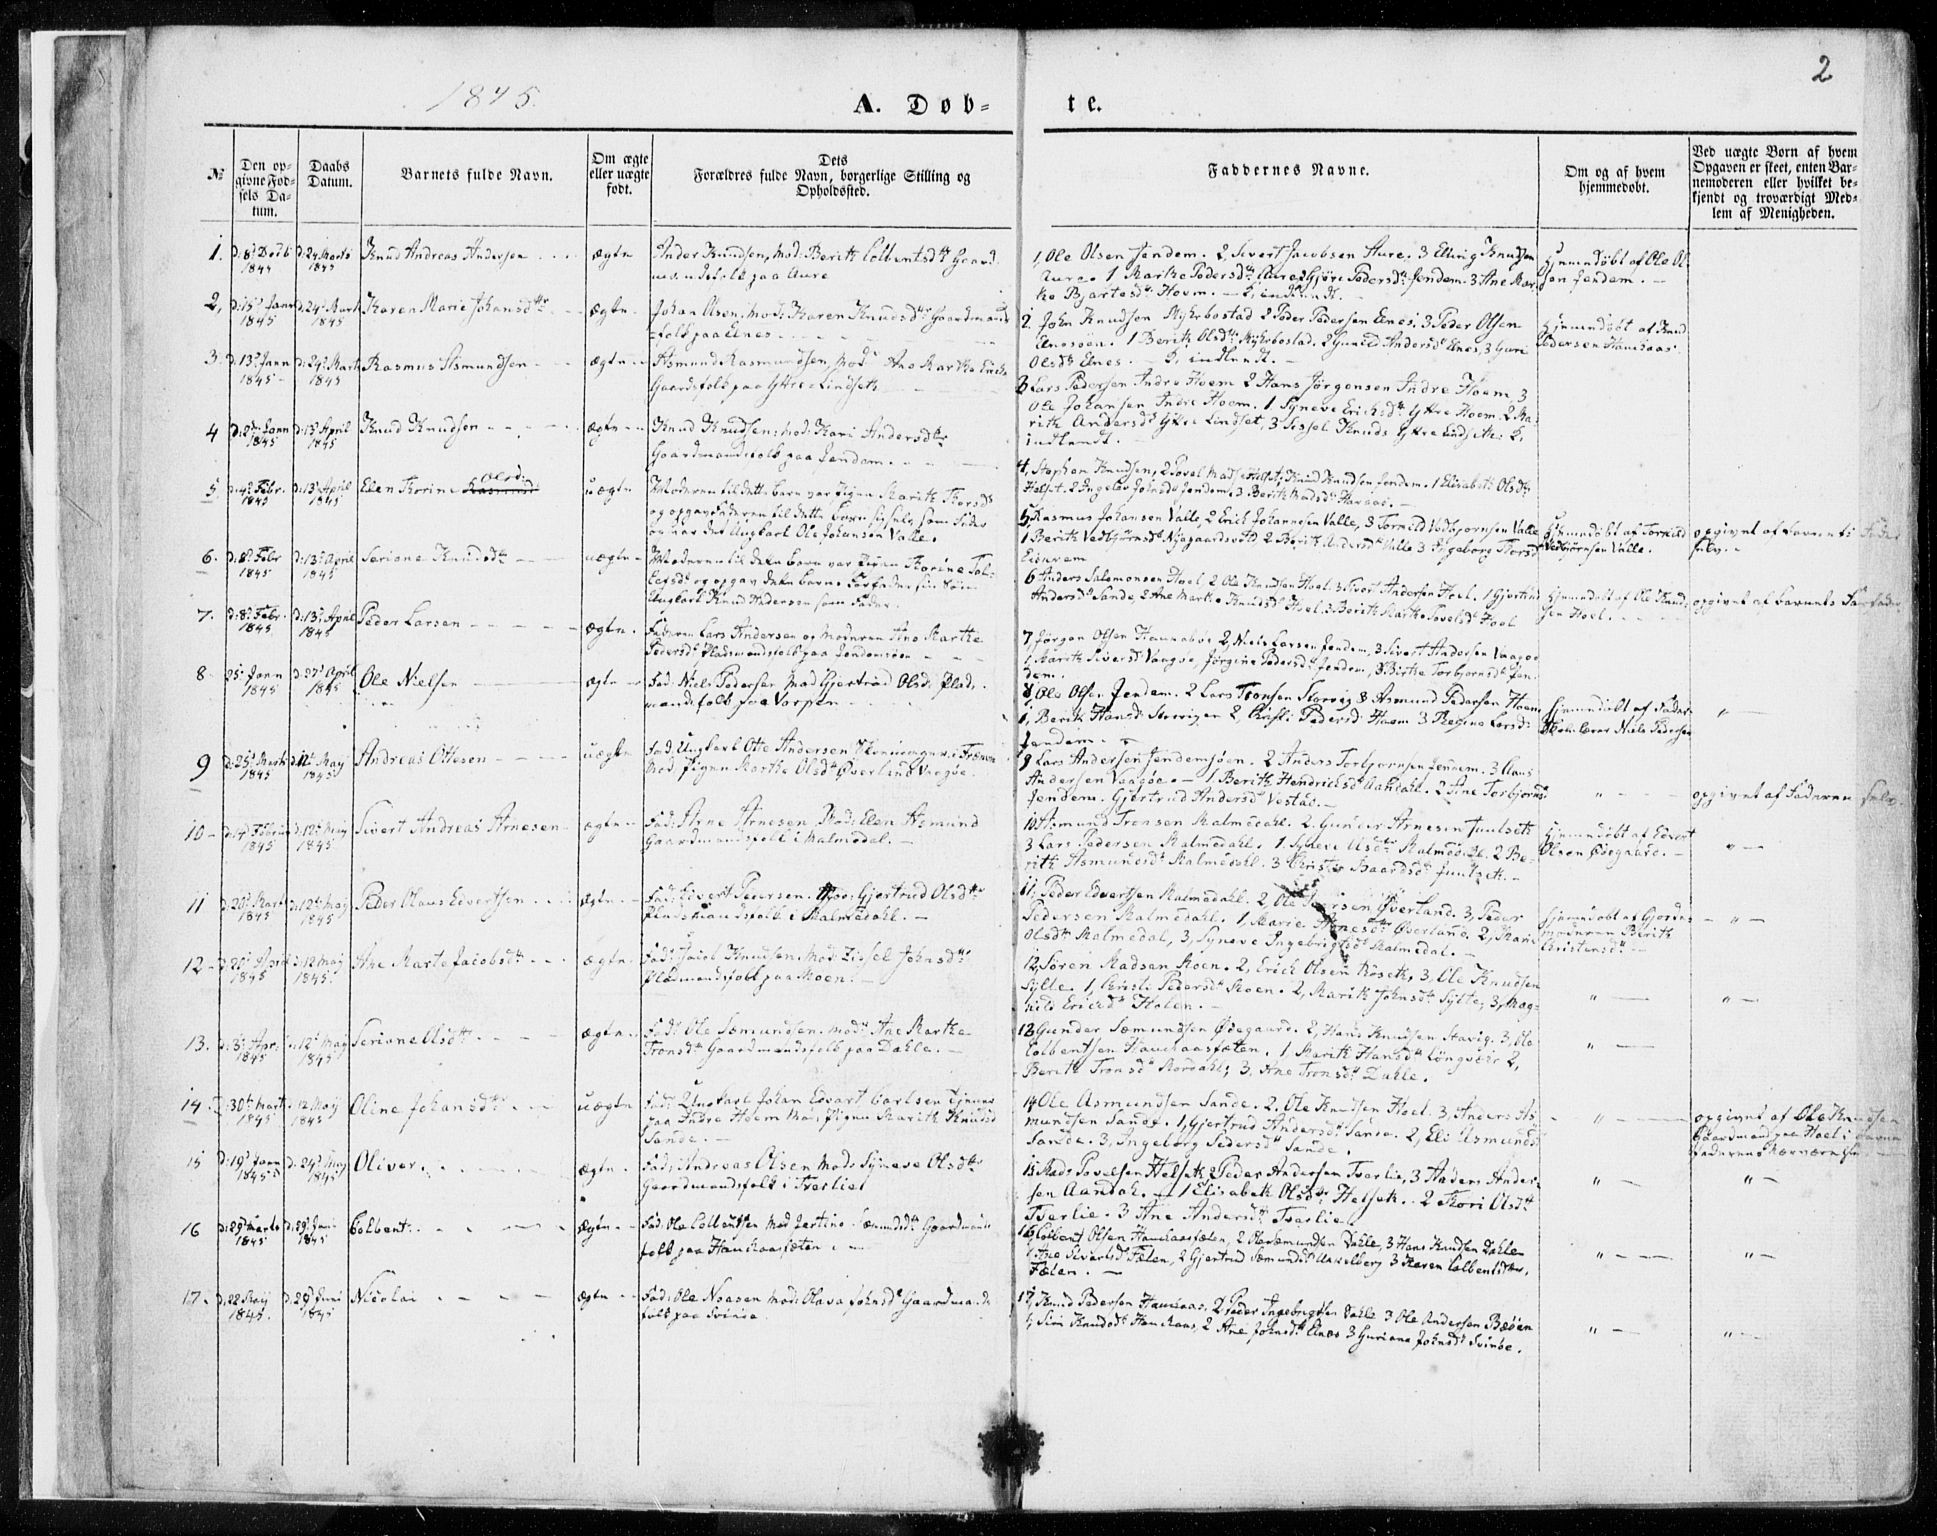 1845.
A. Døb-
te.
2
№
Den op-
givne Fød-
sels Da-
tum.
Daabs
Datum.
Barnets fulde Navn.
Om ægte
eller uægte
født.
Dets
Forældres fulde Navn, borgerlige Stilling og
Opholdssted.
Faddernes Navne.
Om og af hvem
hjemmedøbt.
Ved uægte Børn af hvem
Opgaven er skeet, enten Bar-
nemoderen eller hvilket be-
kjendt og troværdigt Med-
lem af Menigheden.
1. Knud Andreas Andersen ægte
Ander Knudsen, Mod: Berith Colbentsdtr Gaard
mandsfolk paa Aure
1, Ole Olsen Jendem. 2 Sivert Jacobsen Aure. 3 Elling Knudsen
Aure. 1 Marthe Pedersdtr Aure
Hjemmedøbt af Ole Ol
sen Jendem.
2, d: 15d Janr 1845 d: 24d Mart 1845 Karen Marie Johansdtr ægte
Johan Olsen, Mod: Karen Knudsdtr Gaardmands
folk paa Elnes
2. John Knudsen Myhrbostad 2 Peder Pedersen Elnes. 3 Peder Olsen
1 Berith Olsdtr Myhrbostad. 2 Gunild Andersdtr Elnes, 3 Guri
Olsdtr Elnes.
Hjemmedøbt af Knud
Pedersen Haukaas
3. d: 13d Jann 1845 d: 24d Mart 1845 Rasmus Asmundsen ægte
Asmund Rasmundsen, Mod: Ane Marthe
Gaardsfolk paa Ytre Lindseth
3 Lars Pedersen Indre Hoem 2 Hans Jørgensen Indre Hoem, 3
Ole Johansen Indre Hoem. 1. Synneve Erichsdtr Ytre Hoem. 2 Ma-
rith Andersdtr Ytre Lindset, 3 Sissel Knuds Ytre Lindseth
4 Jann 1845 d: 13d April 1845 Knud Knudsen ægte
Knud Knudsen, Mod: Kari Andersdtr
Gaardmandsfolk paa Jendem.
4, Stephen Knudsen, Knud Knudsen Jendem. 1 Elisabeth Olsdtr
Helset. 2 Ingeber Johnsdtr Jendem, 3 Berith Madsdtr
5 d: 4d Febr. 1845 d: 13d April 1845 Elen Thorine Olsd: uægte
Moderen til dette Barn var Pigen Marith Thorsdtr
og opgav Faderen til dette Barn
Ungkarl Ole Johansen Valle.
5, Rasmus Johansen Valle, 2 Erich Johannesen Valle, 3 Tormild Vedbjørnsen Valle
1 Berith Vedbjørnsdtr 2 Berith Andersdtr Valle 3 Ingeborg Thorsdtr
Eiskrem
Hjemmedøbt af Tormild
Vedbjørnsen Valle.
opgivet af Barnets Fader
selv.
6. d: 8d Febr 1845 d: 13d April 1845 Seriane Knudsdtr uægte
Moderen til dette Barn var Pigen Thorine Tol-
lefsdtr og opgav dette Barns Farfader sin Søn
Ungkarl Knud Andersen som Fader.
6 Anders Salomonsen Hoel 2 Ole Knudsen Hoel. 3 Iver Andersen Hoel. 1 Gjertrud
Andersdtr Sande, 2 Ane Marthe Knudsdtr Hoel. 3 Berith Marthe Hoel
Hjemmedøbt af Ole Knud-
sen Hoel.
opgivet af Barnets Farfader
7. d: 8d Febr. 1845 d: 13d April 1845 Peder Larsen ægte
Faderen Lars Andersen og Moderen Ane Marthe
Pedersdtr Pladsmandsfolk paa Jendemsøen
7 Jørgen Olsen Haukabøe 2, Niels Larsen Jendem, 3 Sivert Andersen Vaagøe
1, Marith Siversdtr Vaagøe, Jørgine Pedersdtr Jendem, 3 Birthe Torbjørnsdtr Jen-
dem.
8 25d Jann 1845 d: 27d April 1845 Ole Nielsen ægte
Fad: Niels Pedersen Mod Gjertrud Olsd: Plads-
mandsfolk paa Vorpen
8, Ole Olsen Jendem. 2 Lars Tronsen Storvig 3 Asmund Pedersen Hoem
1, Berith Hansd: 2, Pedersd: Hoem 3 Regine Larsd:
Jendem.
Hjemmedøbt af Fader
Niels Pedersen
9 d: 25d Marts 1845 d: 12d May 1845 Andreas Ottesen uægte
Fad: Ungkarl Otte Andersen
Mod Pigen Marthe Olsdtr Øverland Vaagøe.
9 Lars Andersen Jendemsøen. 2 Anders Torbjørnsen Jendem. 3 Claus
Andersen Vaagøe. 1. Berith Hendrichsdtr Aandahl. 2 Ane Torbjørnsdtr
Jendem. Gjertrud Andersdtr Vestad.
opgivet af Faderen selv
10 d: 14d Februar 1845 d: 12d May 1845 Sivert Andreas Arnesen ægte
Fad: Arne Arnesen Mod: Elen Asmund
Gaardmandsfolk i Malmedal.
10 Asmund Tronsen Malmedahl. 2. Gunder Arnesen
3 Lars Pedersen Malmedahl. 1 Synneve Olsdtr Malmedahl. 2 Be-
rith Asmundsdtr Malmedahl. 3 Baardsdtr
Hjemmedøbt af Edvert
Olson Ødegaard.
11 d: 20d Mart 1845 d: 12d May 1845 Peder Olaus Edvertsen ægte
Fad: Edvert Pedersen. Mod: Gjertrud Olsdtr
Pladsmandsfolk i Malmedahl.
11, Peder Edvertsen Malmedahl. 2, Ole Øverland. 3, Peder
Pedersen Malmedahl. 1, Marie Øverland. 2, Marie
Olsdtr Malmedal, 3, Synneve Ingebrigtsdtr Malmedal.
Hjemmedøbt af Gjorde-
moderen Berith
Christensdtr
12 d: 20d April 1845 d: 12 May 1845. Ane Marte Jacobsdtr ægte
Fad: Jacob Knudsen. Mod: Sissel Johnsdtr
Pladsmandsfolk paa Moen.
12, Søren Madsen Moen. 2, Erich Olsen 3, Ole Knudsen
Sylte. 1, Pedersdtr Moen. 2, Marith Johnsdtr Sylte, 3, Mag-
nild Ericsdtr Holen.
13. d: 3d Apr: 1845 12d May 1845 Seriane Olsdtr ægte
Fad: Ole Sæmundsen. Mod: Ane Marthe
Tronsdtr Gaardmandsfolk paa Dahle.
13 Gunder Sæmundsen Ødegaard. 2, Hans Knudsen Stavig. 3, Ole
Colbentsen Haukaasfæten. 1, Marith Hansdtr 2,
Berith Tronsdtr Mordahl; 3. Ane Tronsdtr Dahle.
14. 30te Marts 1845 12 May 1845 Oline Johansdtr uægte
Fad: Ungkarl Johan Edvart Carlsen
paa Indre Hoem Mod: Pigen Marith Knudsd
Sande.
14 Ole Asmundsen Sande. 2. Ole Knudsen Hoel. 3. Anders As-
mundsen Sande. 1, Gjertrud Andersdtr Sande. 2, Eli Asmundsdtr
Sande. 3, Ingeborg Pedersdtr Sande.
opgivet af Ole Knudsen
Gaardmand paa Hoel i Barne
faderens
15 d: 19d Jann 1845 d: 24d May 1845 Oliver. ægte
Fad: Andreas Olsen Mod: Synneve Olsdtr
Gaardmandsfolk i Tverlie
15 Mads Povelsen Helseth, 2 Peder Andersen Tverlie, 3 Anders Ander-
sen Aandal. 1 Elisabeth Olsdtr Helseth. 2 Kari Olsdtr
Tverlie. 3 Ane Andersdtr Tverlie.
16 d: 29d Marts 1845 d: 29d Juni 1845 Colbent. ægte
Fad: Ole Colbentsen Mod Sæmundsdtr Gaardmands
folk paa Haukaasfæten.
16 Colbent Olsen Haukaasfæten, 2 Ole Sæmundsen Dahle, 3 Hans Knudsen Dahle
1 Ane Sivertsdtr Fæten, 2 Gjertrud Sæmundsdtr 3 Karen Colbentsdtr,
Fæten.
17. d: 22 May 1845. d: 29d Juni 1845 Nicolai ægte
Fad: Ole Noasen Mod: Olava Johnsdtr Gaardmands
folk paa Svinøe.
17, Knud Pedersen Haukaas, 2 Peder Ingebrigtsen Dahle 3 Ole Andersen Bøøen
1, Siri Knudsdtr Haukaas, 2 Ane Johnsdtr Elnes 3 Guriana Johnsdtr Svinøe.